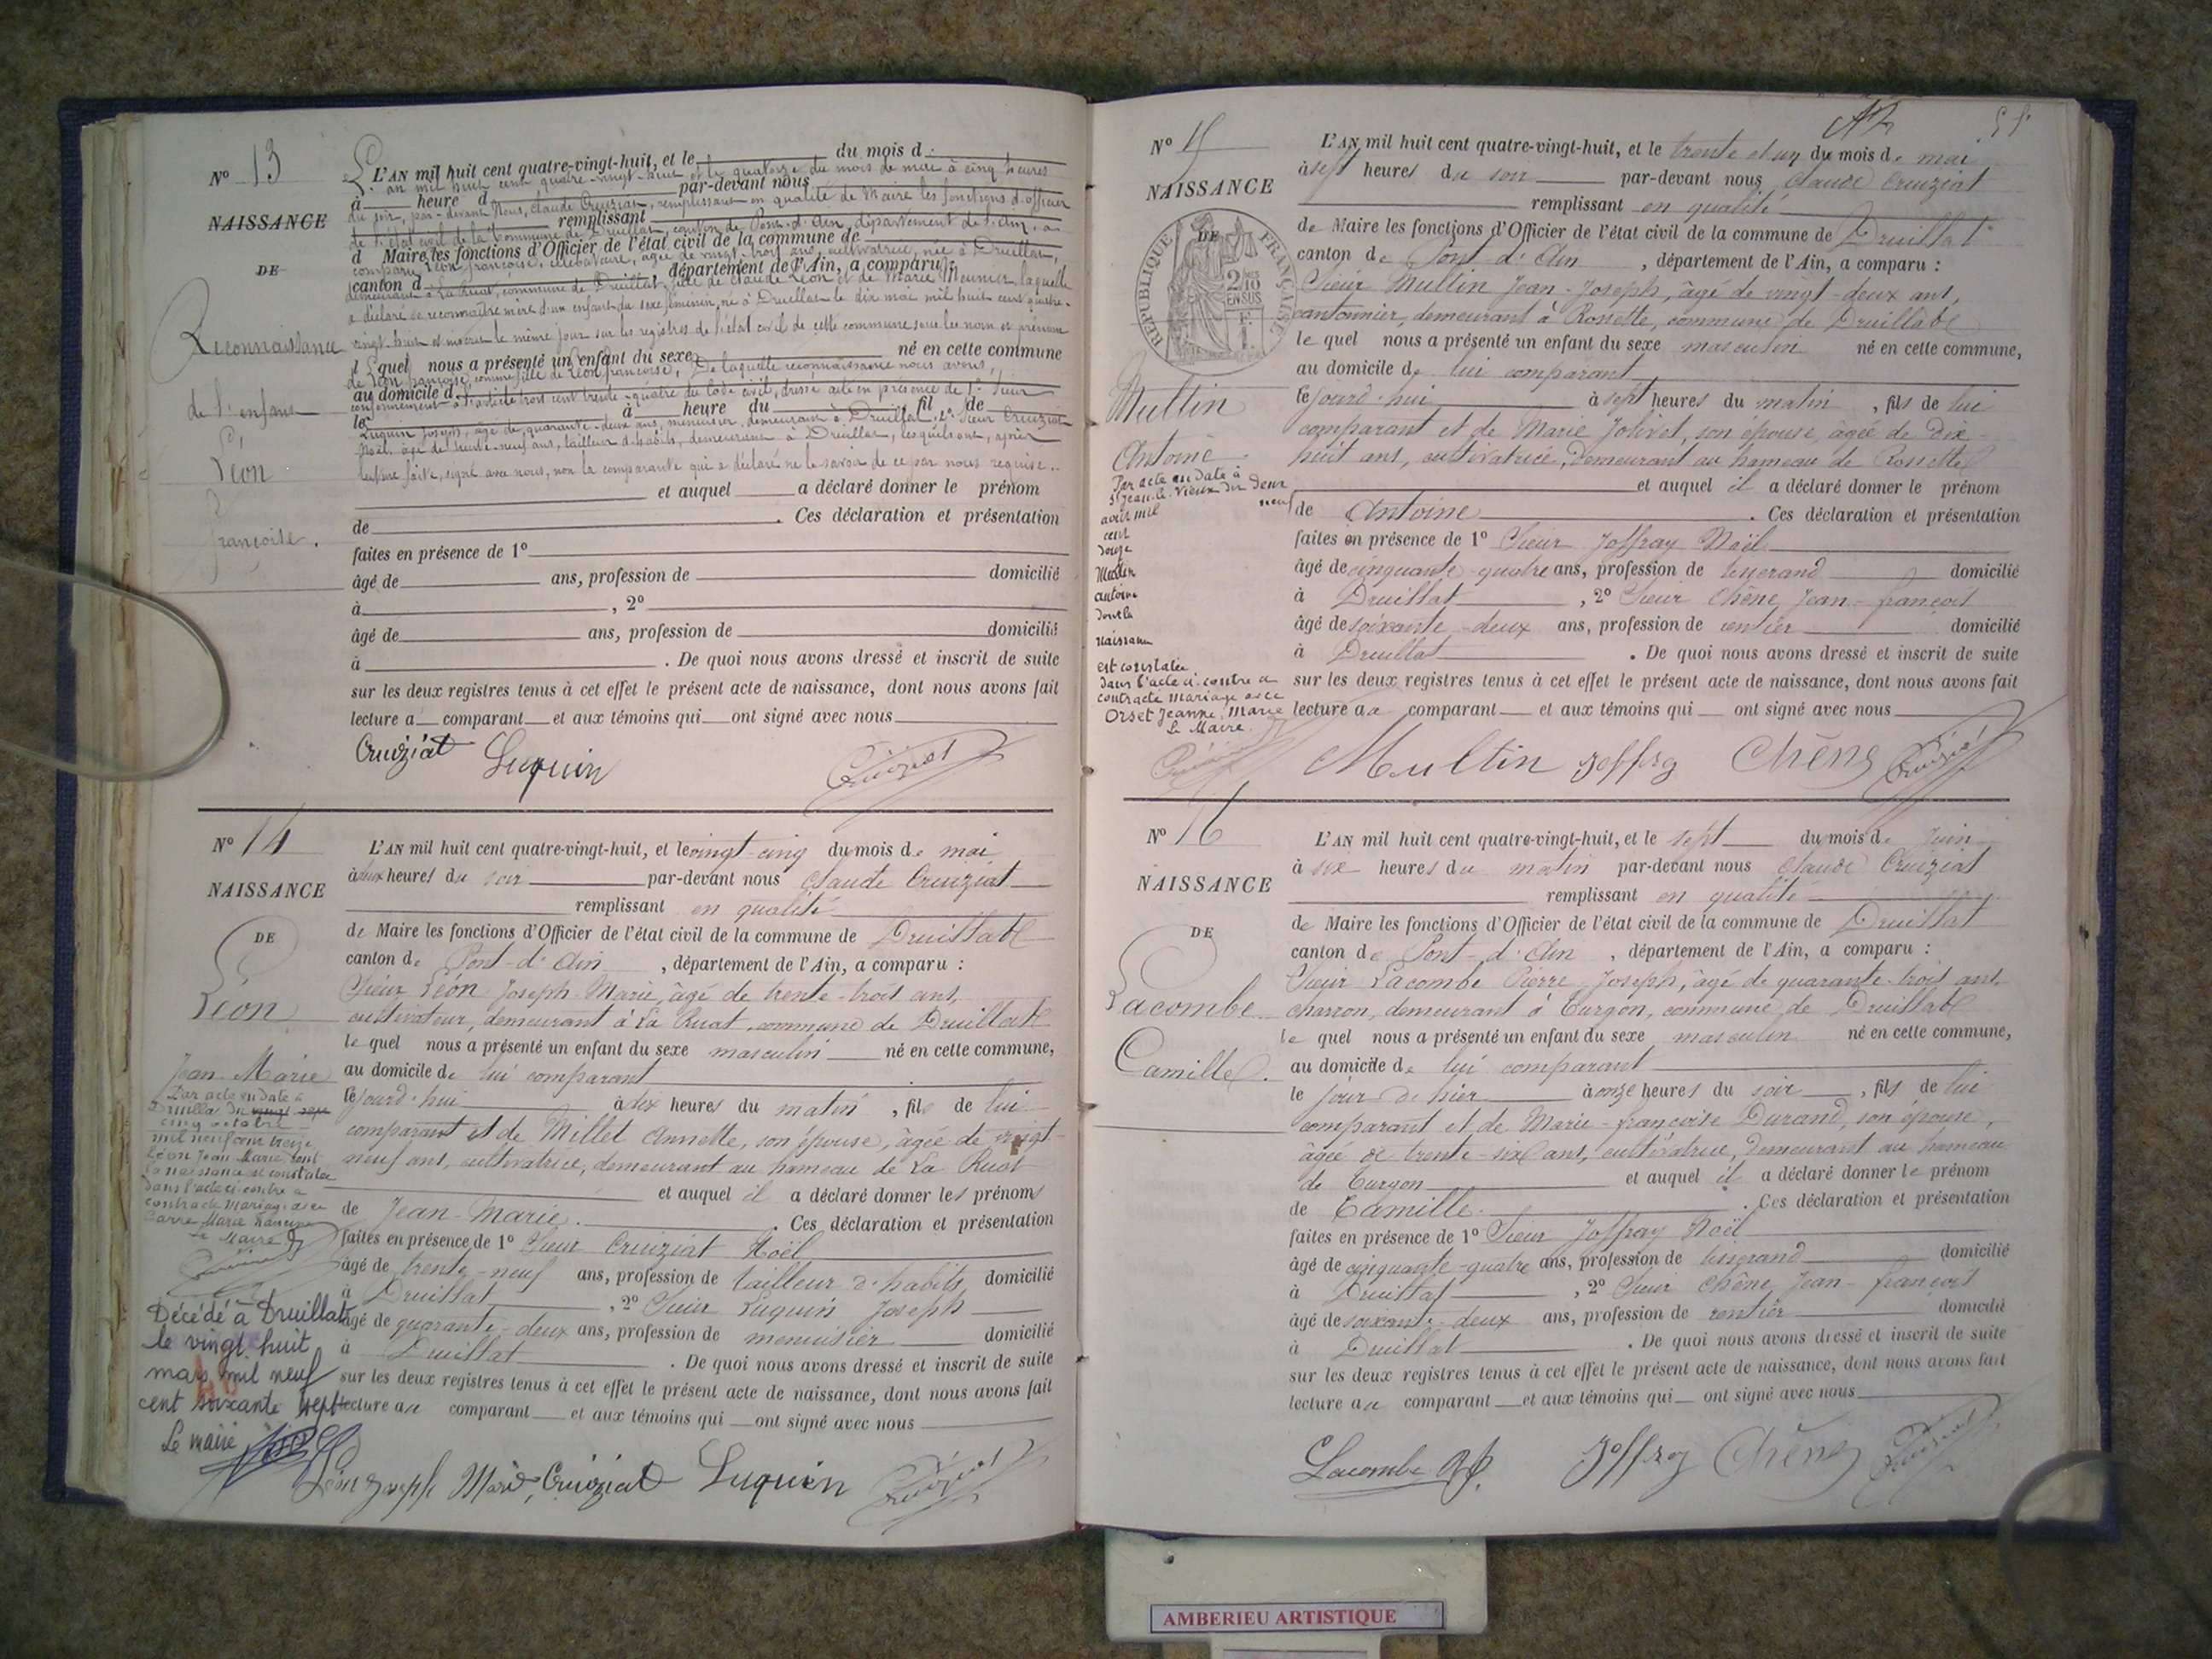 Nº 13
NAISSANCE
DE
Reconnaissance
de l'enfant
Léon
françoise.
L'AN mil huit cent quatre-vingt-huit, et le du mois d
L'an mil huit cent quatre-vingt-huit et le quatorze du mois de mai à cinq heures
à heure d par-devant nous
du soir, par-devant Nous, Claude Cruiziat, remplissant en qualité de Maire les fonctions d'officier
remplissant
de l'état civil de la Commune de Druillat, canton de Pont-d'Ain, département de l'Ain, a
d Maire les fonctions d'Officier de l'état civil de la commune de
comparu Léon françoise, célibataire, âgée de vingt-trois ans, cultivatrice, née à Druillat,
canton d , département de l'Ain, a comparu :
demeurant à La Ruat, commune de Druillat, fille de Claude Léon et de Marie Meunier, laquelle
a déclaré se reconnaître mère d'un enfant du sexe féminin, né à Druillat le dix mai mil huit cent quatre-
vingt-huit et inscrit le même jour sur les registres de l'état civil de cette commune sous les nom et prénom
l quel nous a présenté un enfant du sexe né en cette commune
de Léon françoise, comme fille de Léon françoise. De laquelle reconnaissance nous avons,
au domicile d
conformément à l'article trois cent trente-quatre du Code civil, dressé acte en présence de 1º Sieur
le à heure du , fil de
Luquin Joseph, âgé de quarante-deux ans, menuisier, demeurant à Druillat, 2º Sieur Cruiziat
Noël, âgé de trente-neuf ans, tailleur d'habits, demeurant à Druillat, lesquels ont, après
lecture faite, signé avec nous, non la comparante qui a déclaré ne le savoir de ce par nous requise.
et auquel a déclaré donner le prénom
de . Ces déclaration et présentation
faites en présence de 1º
âgé de ans, profession de domicilié
à , 2º
âgé de ans, profession de domicilié
à . De quoi nous avons dressé et inscrit de suite
sur les deux registres tenus à cet effet le présent acte de naissance, dont nous avons fait
lecture a comparant et aux témoins qui ont signé avec nous
Cruiziat Luquin Cruiziat
Nº 14
NAISSANCE
DE
Léon
Jean Marie
Par acte en date à
Druillat du
cinq octobre
mil neuf cent treize
Léon Jean Marie dont
la naissance est constatée
dans l'acte ci-contre a
contracté Mariage avec
Marie
Le Maire
Décédé à Druillat
le vingt huit
mars mil neuf
cent soixante sept
Le maire
L'AN mil huit cent quatre-vingt-huit, et le vingt-cinq du mois de mai
à deux heures du soir par-devant nous Claude Cruiziat
remplissant en qualité
de Maire les fonctions d'Officier de l'état civil de la commune de Druillat
canton de Pont-d'Ain , département de l'Ain, a comparu :
Sieur Léon Joseph-Marie, âgé de trente-trois ans,
cultivateur, demeurant à La Ruat, commune de Druillat
le quel nous a présenté un enfant du sexe masculin né en cette commune,
au domicile de lui comparant
le jourd'hui à dix heures du matin , fils de lui
comparant et de Millet Annette, son épouse, âgée de vingt-
neuf ans, cultivatrice, demeurant au hameau de La Ruat
et auquel il a déclaré donner les prénoms
de Jean-Marie. . Ces déclaration et présentation
faites en présence de 1º Sieur Cruiziat Noël
âgé de trente-neuf ans, profession de tailleur d'habits domicilié
à Druillat , 2º Sieur Luquin Joseph
âgé de quarante-deux ans, profession de menuisier domicilié
à Druillat . De quoi nous avons dressé et inscrit de suite
sur les deux registres tenus à cet effet le présent acte de naissance, dont nous avons fait
lecture au comparant et aux témoins qui ont signé avec nous
Léon Joseph Marie Cruiziat Luquin Cruiziat
Nº 15
NAISSANCE
DE
RÉPUBLIQUE FRANÇAISE
2/10
EN SUS
Multin
Antoine
Par acte en date à
St Jean-le-Vieux du deux
août mil neuf
cent
douze
Multin
antoine
dont la
naissance
est constatée
dans l'acte ci-contre a
contracté mariage avec
Orset Jeanne Marie
Le Maire
L'AN mil huit cent quatre-vingt-huit, et le trente et un du mois de mai
à sept heures du soir par-devant nous Claude Cruiziat
remplissant en qualité
de Maire les fonctions d'Officier de l'état civil de la commune de Druillat
canton de Pont-d'Ain , département de l'Ain, a comparu :
Sieur Multin Jean-Joseph, âgé de vingt-deux ans,
cantonnier, demeurant à Rossette, commune de Druillat
le quel nous a présenté un enfant du sexe masculin né en cette commune,
au domicile de lui comparant
le jourd'hui à sept heures du matin , fils de lui
comparant et de Marie Jolivet, son épouse, âgée de dix-
huit ans, cultivatrice, demeurant au hameau de Rossette
et auquel il a déclaré donner le prénom
de Antoine . Ces déclaration et présentation
faites en présence de 1º Sieur Joffray Noël
âgé de cinquante-quatre ans, profession de tisserand domicilié
à Druillat , 2º Sieur Chêne Jean-françois
âgé de soixante-deux ans, profession de rentier domicilié
à Druillat . De quoi nous avons dressé et inscrit de suite
sur les deux registres tenus à cet effet le présent acte de naissance, dont nous avons fait
lecture au comparant et aux témoins qui ont signé avec nous
Multin Joffray Chêne Cruiziat
Nº 16
NAISSANCE
DE
Lacombe
Camille.
L'AN mil huit cent quatre-vingt-huit, et le sept du mois de Juin
à six heures du matin par-devant nous Claude Cruiziat
remplissant en qualité
de Maire les fonctions d'Officier de l'état civil de la commune de Druillat
canton de Pont-d'Ain , département de l'Ain, a comparu :
Sieur Lacombe Pierre-Joseph, âgé de quarante-trois ans,
charron, demeurant à Turgon, commune de Druillat
le quel nous a présenté un enfant du sexe masculin né en cette commune,
au domicile de lui comparant
le jour d'hier à onze heures du soir , fils de lui
comparant et de Marie-françoise Durand, son épouse,
âgée de trente-six ans, cultivatrice, demeurant au hameau
de Turgon et auquel il a déclaré donner le prénom
de Camille. . Ces déclaration et présentation
faites en présence de 1º Sieur Joffray Noël
âgé de cinquante-quatre ans, profession de tisserand domicilié
à Druillat , 2º Sieur Chêne Jean-françois
âgé de soixante-deux ans, profession de rentier domicilié
à Druillat . De quoi nous avons dressé et inscrit de suite
sur les deux registres tenus à cet effet le présent acte de naissance, dont nous avons fait
lecture au comparant et aux témoins qui ont signé avec nous
Lacombe Joffray Chêne Cruiziat
AMBERIEU ARTISTIQUE